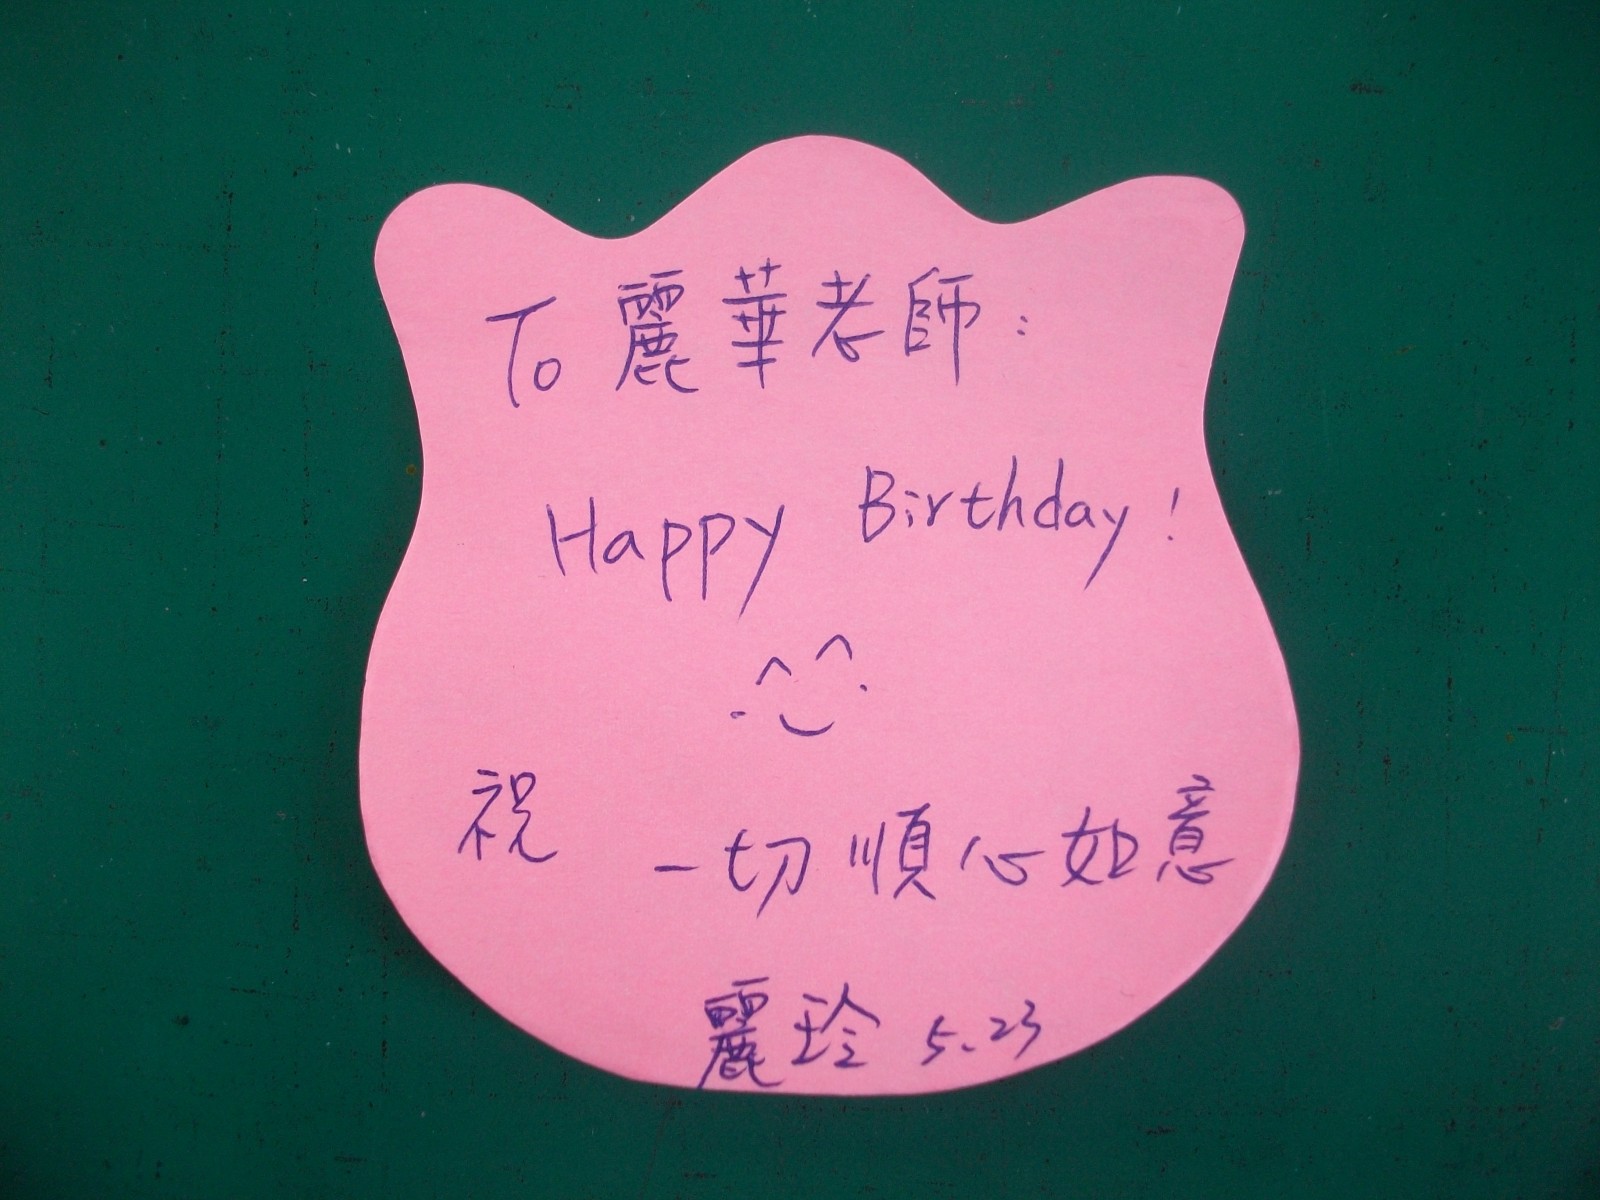 To 麗華老師:
Happy Birthday!
祝 一切順心如意
麗玲 5.23